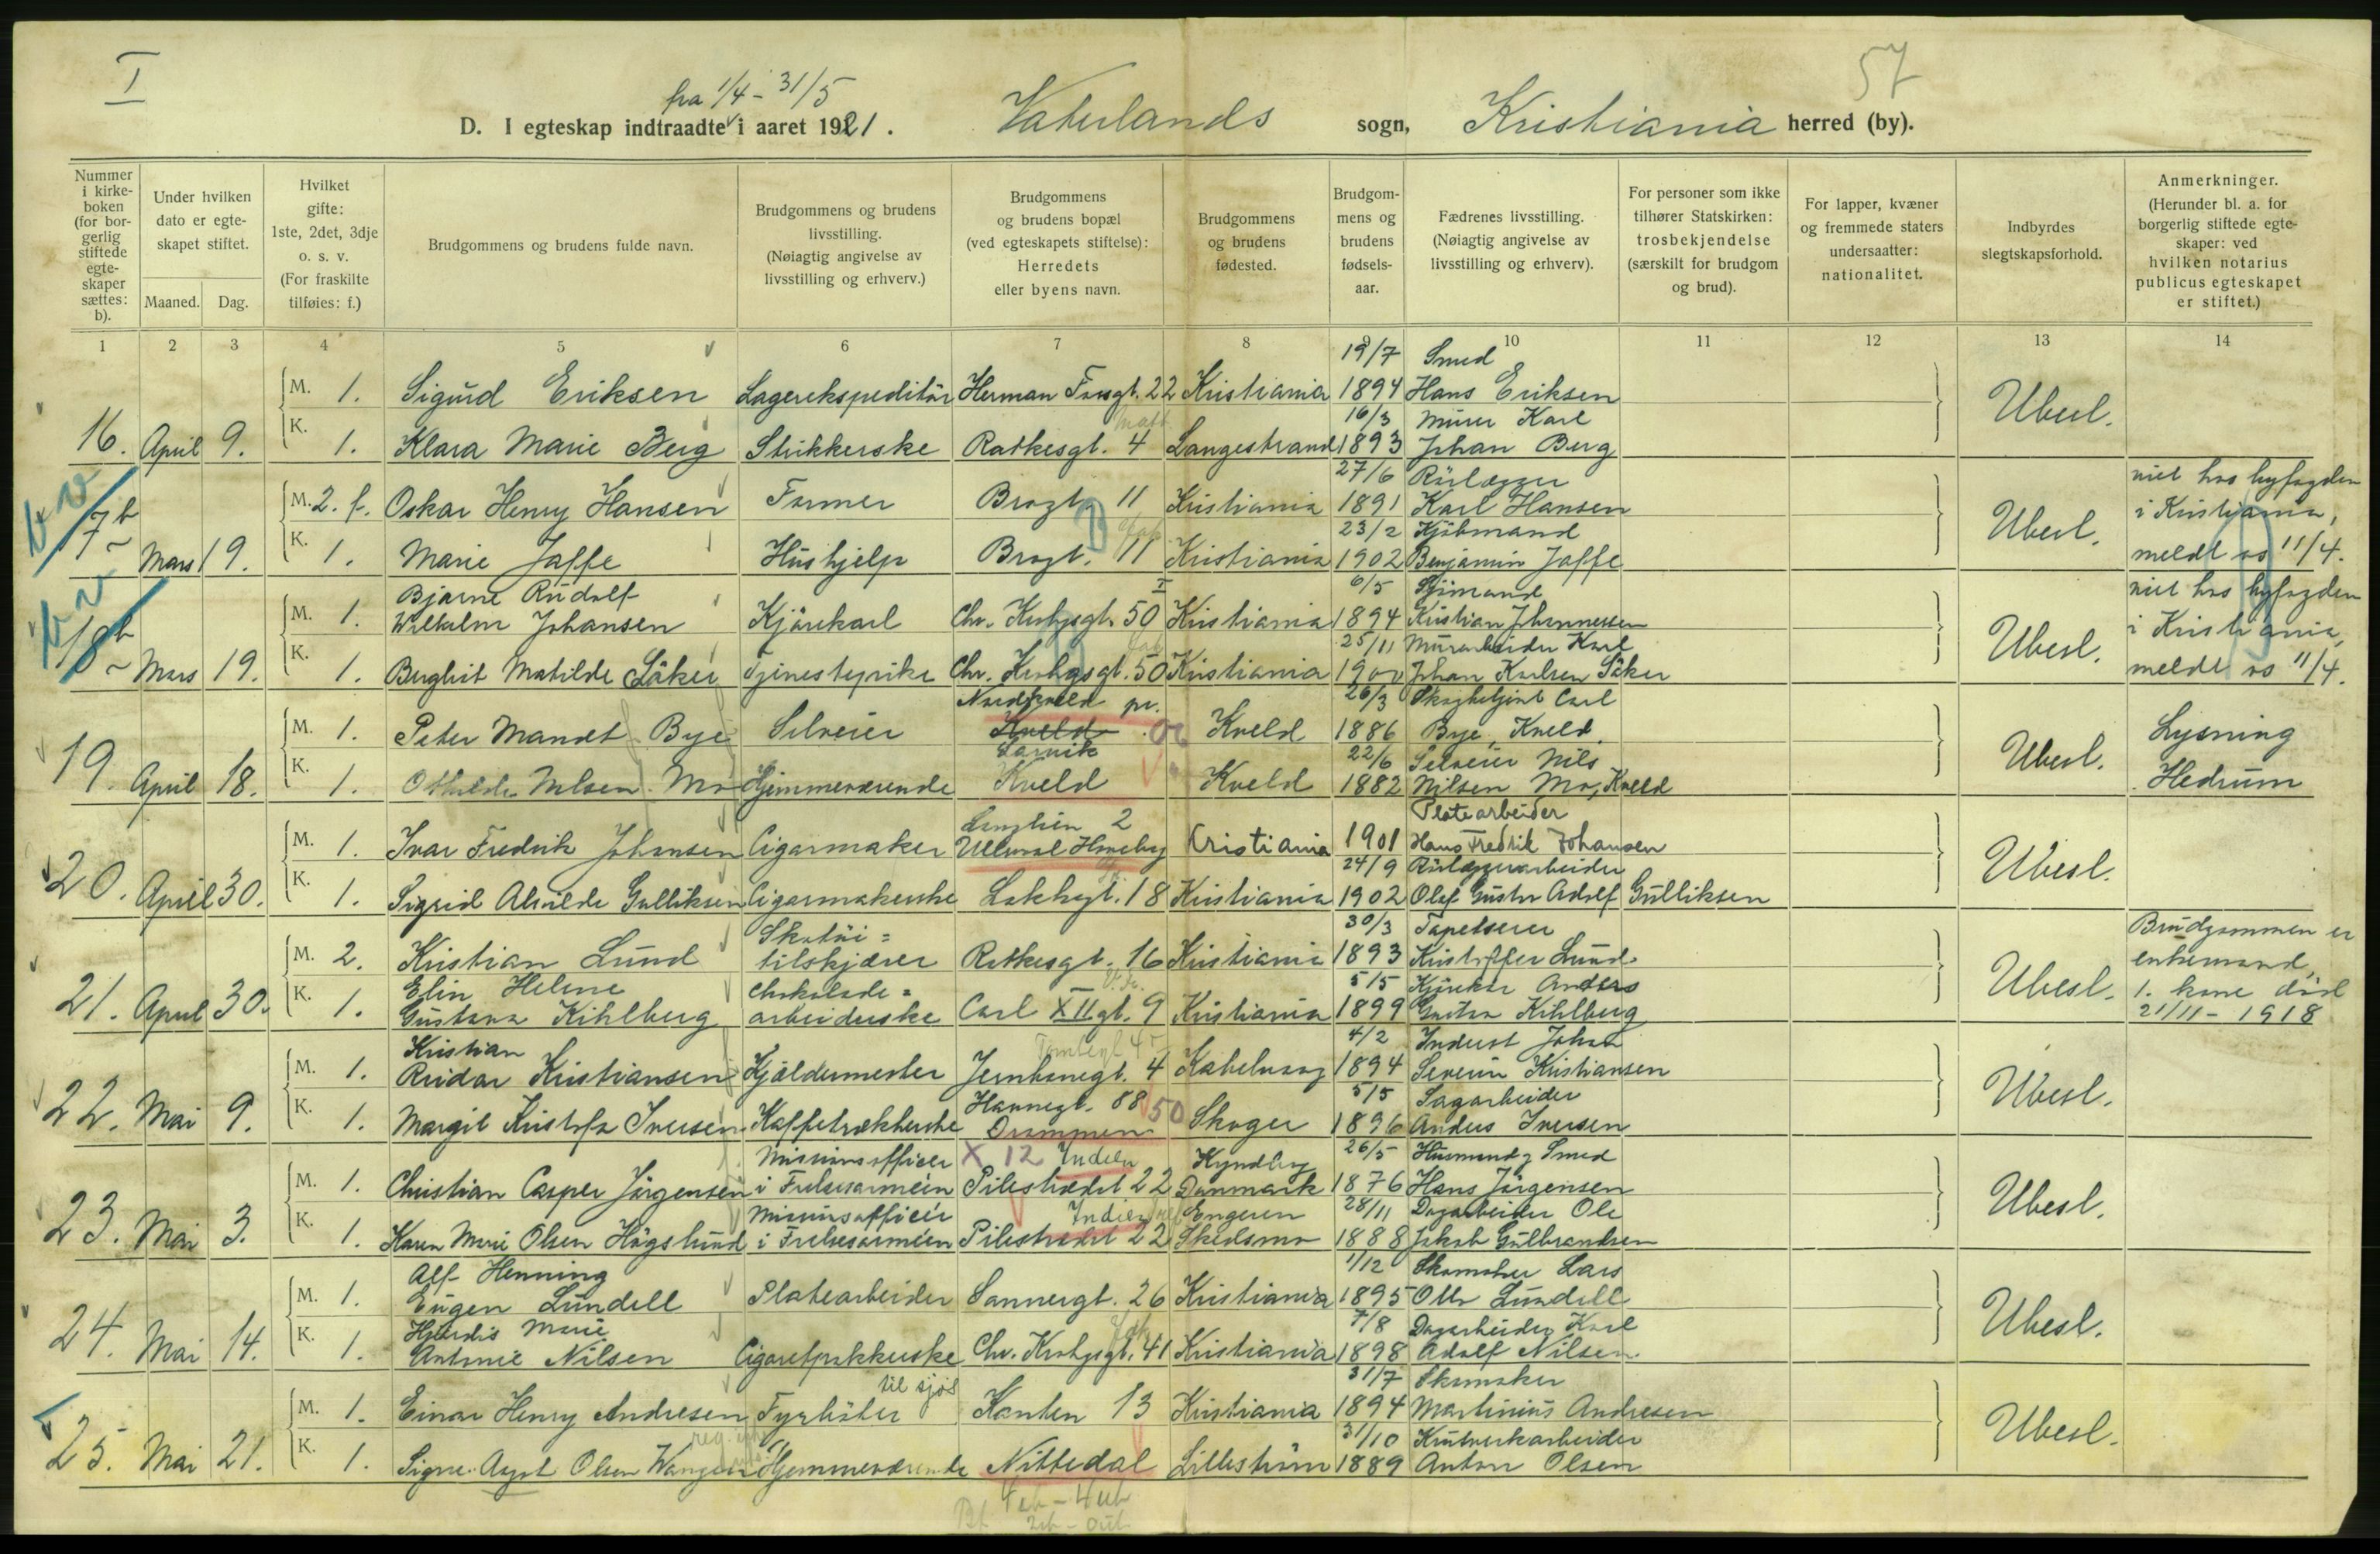 I
57
fra 1/4 - 31/5
D. I egteskap indtraadte i aaret 1921. Vaterlands sogn, Kristiania herred (by).
Nummer i kirke-boken (for bor-gerlig stiftede egte-skaper sættes: b).
Under hvilken dato er egte-skapet stiftet.
Maaned. Dag.
Hvilket gifte: 1ste, 2det, 3dje o. s. v. (For fraskilte tilføies: f.)
Brudgommens og brudens fulde navn.
Brudgommens og brudens livsstilling. (Nøiagtig angivelse av livsstilling og erhverv.)
Brudgommens og brudens bopæl (ved egteskapets stiftelse): Herredets eller byens navn.
Brudgommens og brudens fødested.
Brudgom-mens og brudens fødsels-aar.
Fædrenes livsstilling. (Nøiagtig angivelse av livsstilling og erhverv).
For personer som ikke tilhører Statskirken: trosbekjendelse (særskilt for brudgom og brud).
For lapper, kvæner og fremmede staters undersaatter: nationalitet.
Indbyrdes slegtskapsforhold.
Anmerkninger. (Herunder bl. a. for borgerlig stiftede egte-skaper: ved hvilken notarius publicus egteskapet er stiftet.)
1 2 3 4 5 6 7 8 9 10 11 12 13 14
19/7 Smed
M. 1. Sigurd Eriksen Lagerekspeditör Herman Fossgt. 22 Kristiania 1894 Hans Eriksen
16/3 Murer Karl
16. April 9. K. 1. Klara Marie Berg Strikkerske Ratkesgt. 4 Langestrand 1893 Johan Berg Ubesl.
27/6 Rörlægger
M. 2. f. Oskar Henry Hansen Former Brogt. 11 Kristiania 1891 Karl Hansen
23/2 Kjöbmand
17b Mars 19. K. 1. Marie Jaffe Hushjelp Brogt. 11 Kristiania 1902 Benjamin Jaffe Ubesl.
viet hos byfogden
i Kristiania,
meldt os 11/4.
Bjarne Rudolf 6/5 Sjömand
M. 1. Wilhelm Johansen Kjörekarl Chr. Krohgsgt. 50 Kristiania 1894 Kristian Johannessen
25/11 Murarbeider Karl
18b Mars 19. K. 1. Berghit Matilde Säker Tjenestepike Chr. Krohgsgt. 50 Kristiania 1900 Johan Karlsen Säker Ubesl.
viet hos byfogden
i Kristiania,
meldt os 11/4.
Nordkveld pr. 26/3 Carl
M. 1. Peter Mandt Bye Selveier Kveld Kveld 1886 Bye, Kveld.
Larvik 22/6 Selveier Nils
19. April 18. K. 1. Nilsen Mo Hjemmeværende Kveld Kveld 1882 Nilsen Mo, Kveld Ubesl.
Lysning
Hedrum
2 Platearbeider
M. 1. Ivar Fredrik Johansen Cigarmaker Ullevaal Haveby Kristiania 1901 Hans Fredrik Johansen
24/9 Rörlæggerarbeider
20. April 30. K. 1. Sigrid Alvilde Gulliksen Cigarmakerske Lakkegt. 18 Kristiania 1902 Olaf Gustav Adolf Gulliksen Ubesl.
Skotöi= 30/3 Tapetserer
M. 2. Kristian Lund tilskjærer Ratkesgt. 16 Kristiania 1893 Kristoffer Lund
Elin Helene Chokolade= 5/5 Kjörekar Anders
21. April 30. K. 1. Gustava Kihlberg arbeiderske Carl XII gt. 9 Kristiania 1899 Gustav Kihlberg Ubesl.
Brudgommen er
enkemand,
1. kone död
21/11 - 1918
Kristian 4/2 Inderst Johan
M. 1. Reidar Kristiansen Kjældermester Jernbanegt. 4 Kabelvaag 1894 Severin Kristiansen
Hannegt. 88 50 5/5 Sagarbeider
22. Mai 9. K. 1. Margit Kristofa Iversen Kaffetrækkerske Drammen Skoger 1896 Anders Iversen Ubesl.
Missionsofficer X 12 Indien Kyndby 26/5 Husmand, Smed
M. 1. Christian Casper Jörgensen i Frelsesarmeen Pilestrædet 22 Danmark 1876 Hans Jörgensen
Missionsofficer Indien Engeren 28/11 Dagarbeider Ole
23. Mai 3. K. 1. Karen Marie Olsen Högslund i Frelsesarmeen Pilestrædet 22 Skedsmo 1888 Jakob Gulbrandsen Ubesl.
Alf Henning 1/12 Skomaker Lars
M. 1. Eugen Lundell Platearbeider Sannergt. 26 Kristiania 1895 Otto Lundell
Hjördis Marie 7/8 Dagarbeider Karl
24. Mai 14. K. 1. Antonie Nilsen Cigaretpakkerske Chr. Krohgsgt. 41 Kristiania 1898 Adolf Nilsen Ubesl.
til sjös 31/7 Skomaker
M. 1. Einar Henry Andresen Fyrböter Kanten 13 Kristiania 1894 Martinius Andresen
31/10 Krutverkarbeider
25. Mai 21. K. 1. Signe Agot Olsen Wangen Hjemmeværende Nittedal Lilleström 1889 Anton Olsen Ubesl.